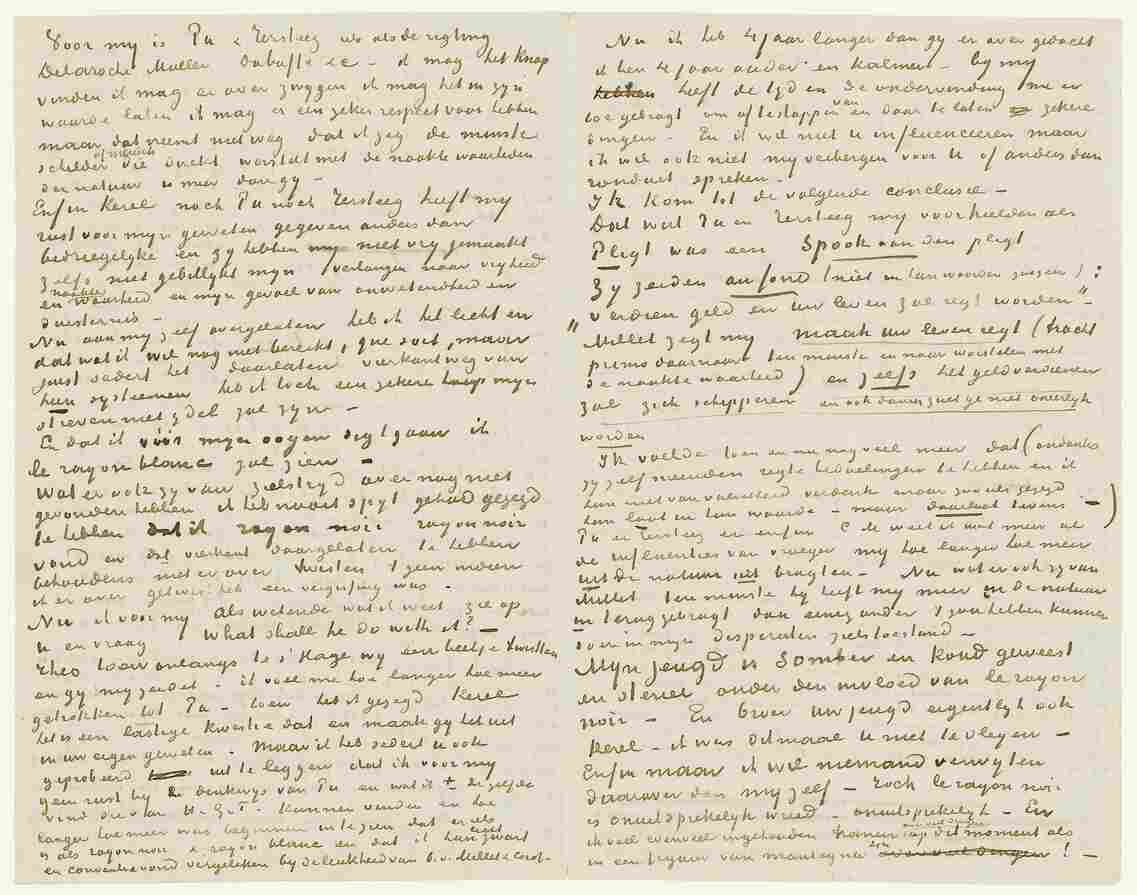 Voor my is Pa & Tersteeg iets als de rigting
Delaroche Muller Dubuffe &c – ik mag het knap
vinden ik mag er over zwygen ik mag het in zyn
waarde laten ik mag er een zeker respect voor hebben
maar dat neemt niet weg dat ik zeg de minste
schilder of mensch die direkt worstelt met de naakte waarheden
der natuur is meer dan gy –
Enfin kerel noch Pa noch Tersteeg heeft my
rust voor myn geweten gegeven anders dan
bedriegelyke en zy hebben my niet vry gemaakt
zelfs niet gebillykt myn verlangen naar vryheid
en naakte waarheid en myn gevoel van onwetendheid en
duisternis –
Nu aan my zelf overgelaten heb ik het licht en
dat wat ik wil nog niet bereikt, que soit, maar
juist sedert het daarlaten vierkantweg van
hun systeemen heb ik toch een zekere hoop myn
streven niet ydel zal zyn –
En dat ik vóór myn oogen digt gaan ik
le rayon blanc zal zien –
Wat er ook zy van zielstryd over nog niet
gevonden hebben ik heb nooit spyt gehad gezegd
te hebben dat ik rayon noir rayon noir
vond en dat vierkant daargelaten te hebben
behoudens niet er over twisten & geen meer
ik er over getwist heb een vergissing was –
Nu ik voor my als wetende wat ik weet zie op
U en vraag What shall he do with it? –
Theo toen onlangs te s'Hage wy een beetje twistten
en gy my zeidet – ik voel me hoe langer hoe meer
getrokken tot Pa – toen heb ik gezegd kerel
het is een lastige kwestie dat en maak gy het uit
in uw eigen geweten – Maar ik heb sedert U ook
geprobeerd uit te leggen dat ik voor my
geen rust by de denkwys van Pa en wat ik ± dezelfde
vind die van H.G.T. kunnen vinden en hoe
langer hoe meer was beginnen in te zien dat er iets
is als rayon noir & rayon blanc en dat ik hun licht zwart
en conventie vond vergeleken by de leukheid van b.v. Millet & Corot –
Nu ik heb 4 jaar langer dan gy er over gedacht
ik ben 4 jaar ouder en kalmer – by my
hebben heeft de tyd en de ondervinding me er
toe gebragt om af te stappen van en daar te laten zekere
dingen – En ik wil niet U influenceeren maar
ik wil ook niet my verbergen voor U of anders dan
ronduit spreken –
Ik kom tot de volgende conclusie –
Dat wat Pa en Tersteeg my voorhielden als
Pligt was een Spook van den pligt
Zy zeiden au fond (niet in lan woorden juist):
"verdien geld en uw leven zal regt worden" –
Millet zegt my maak uw leven regt (tracht
primo daarnaar ten minste en naar worstelen met
de naakte waarheid) en zelfs het geldverdienen
zal zich schipperen en ook daarin zult ge niet oneerlyk
worden
Ik voelde toen en nu nog veel meer dat (ondanks
zy zelf meenden regte bedoelingen te hebben en ik
hen niet van valschheid verdenk maar zooals gezegd
hen laat in hun waarde – maar daarlaat tevens –)
Pa en Tersteeg en enfin C.M. weet ik wat meer al
de influenties van vroeger my hoe langer hoe meer
uit de natuur uit bragten – Nu wat er ook zy van
Millet ten minste hy heeft my meer in de natuur
in teruggebragt dan eenig ander & zou hebben kunnen
doen in myn desperaten zielstoestand –
Myn jeugd is somber en koud geweest
en steriel onder den invloed van le rayon
noir – En broer uw jeugd eigentlyk ook
kerel – ik was ditmaal U niet te vleyen –
Enfin maar ik wil niemand verwyten
daarover dan my zelf – Toch le rayon noir
is onuitsprekelyk wreed – onuitsprekelyk – En
ik voel evenveel ingehouden tranen op dit moment als
in een figuur van Mantegna ! –